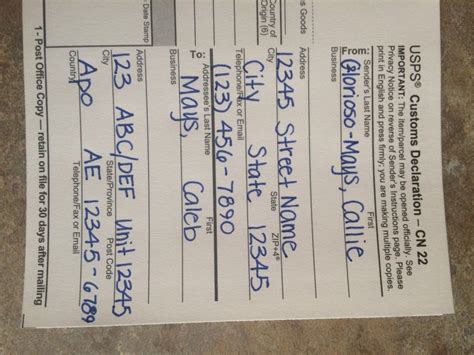 USPS® Customs Declaration - CN 22
IMPORTANT: The item/parcel may be opened officially. See
Privacy Notice on reverse of Sender's Instructions page. Please
print in English and press firmly; you are making multiple copies.
From: Sender's Last Name First
Glorioso-Mays, Callie
Business
Address
12345 Street Name
City State ZIP+4®
City State 12345
Telephone/Fax or Email
(123) 456-7890
To: Addressee's Last Name First
Mays Caleb
Business
Address
123 ABC/DEF Unit 12345
City State/Province Post Code
Apo AE 12345-6789
Country Telephone/Fax or Email
1 - Post Office Copy — retain on file for 30 days after mailing
s Goods
Country of
Origin (6)
Date Stamp